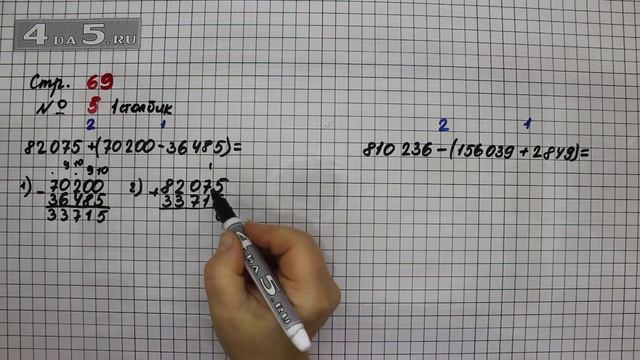 4 ДА 5.RU
Стр. 69
№ 5 1 столбик
2 1
82075+(70200-36485)=
2 1
810 236-(156039+2849)=
9 10 9 10
1) -70200
36485
33715
1
2) +82075
3371
4 ДА 5.RU